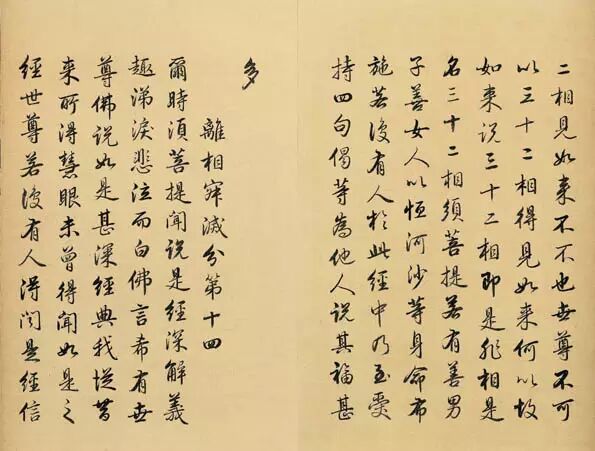 二相見如来不不也世尊不可
以三十二相得見如来何以故
如来说三十二相即是非相是
名三十二相須菩提若有善男
子善女人以恒河沙等身命布
施若復有人於此經中乃至受
持四句偈等為他人说其福甚
多
離相寂滅分第十四
爾時須菩提聞说是經深解義
趣涕淚悲泣而白佛言希有世
尊佛说如是甚深經典我從昔
来所得慧眼未曾得聞如是之
經世尊若復有人得聞是經信